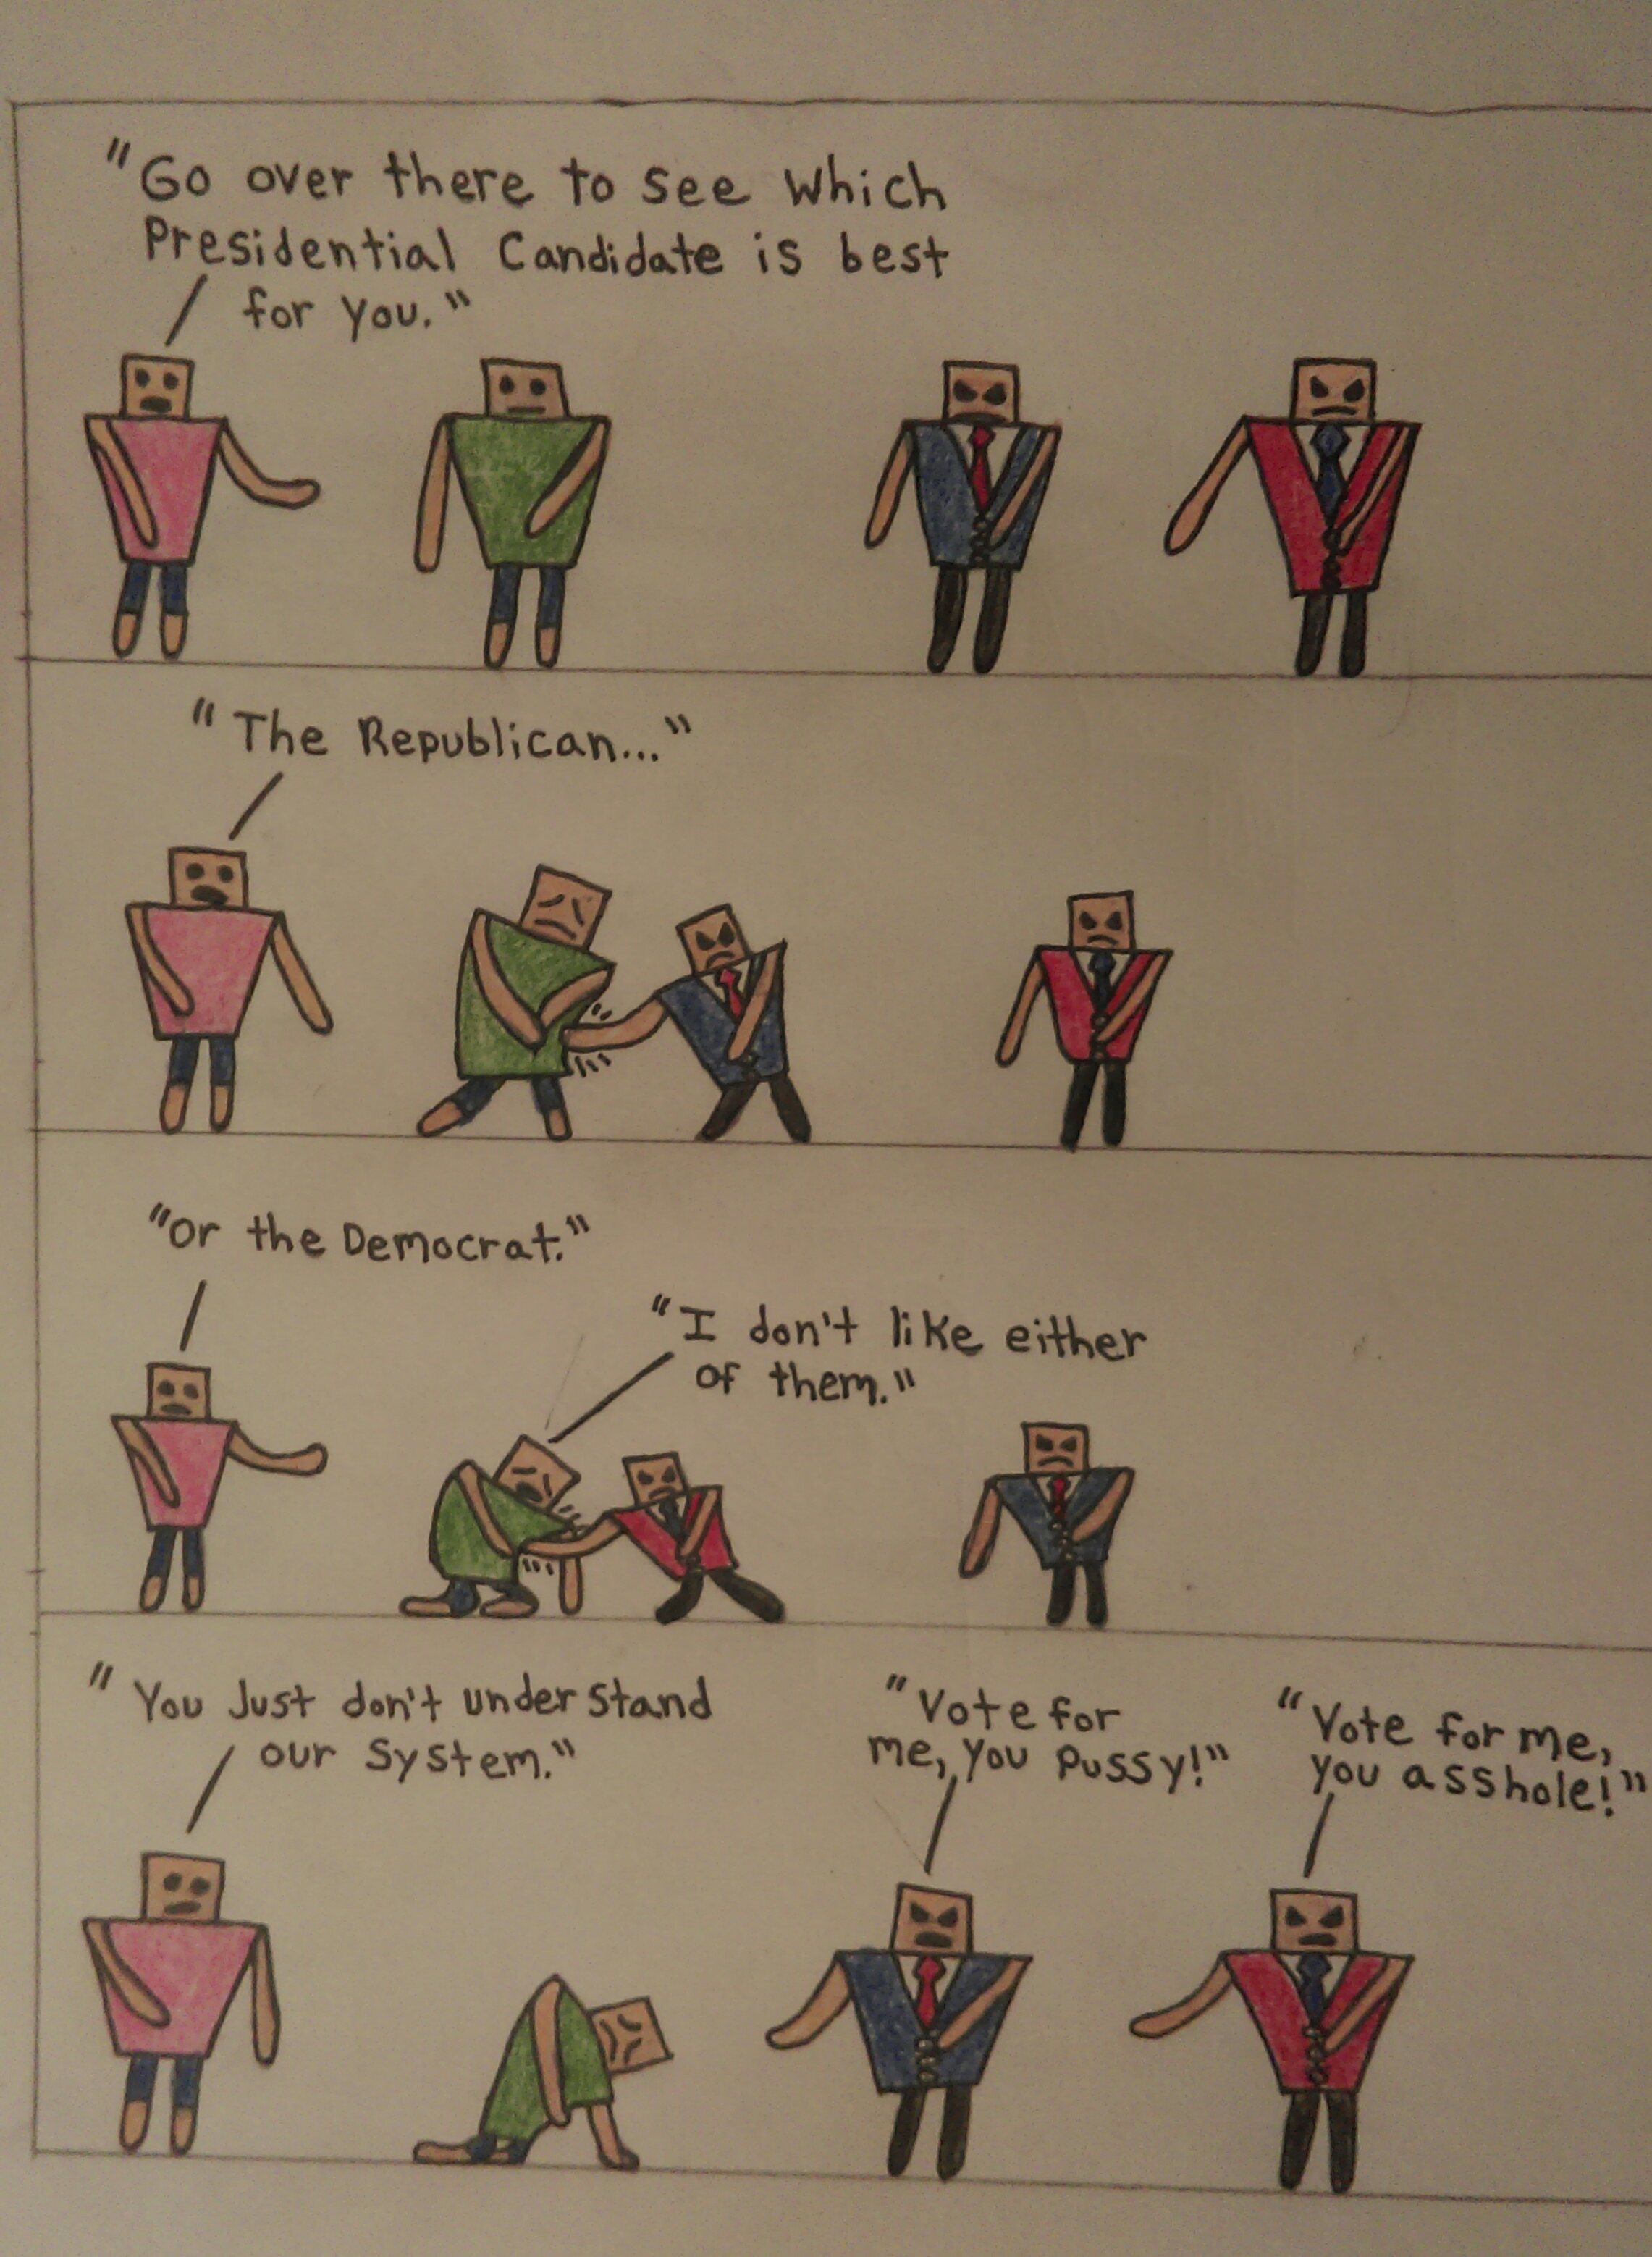 "Go over there to see which
Presidential Candidate is best
for you."
"The Republican..."
"Or the Democrat."
"I don't like either
of them."
"You Just don't understand
our System."
"Vote for
me, you pussy!"
"Vote for me,
you asshole!"